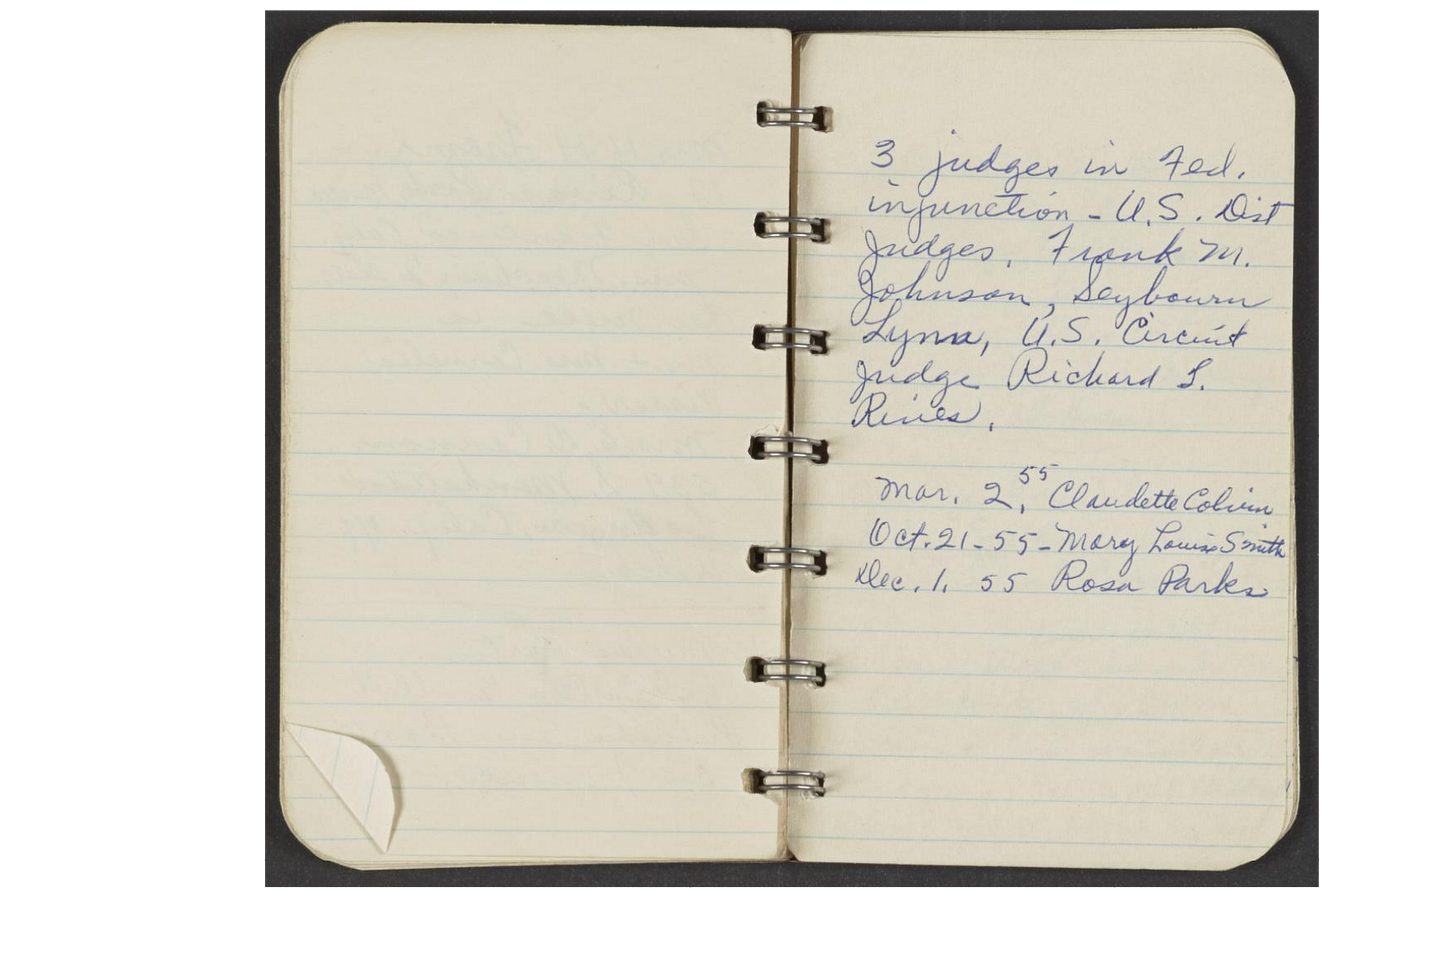 3 judges in Fed.
injunction - U.S. Dist
Judges, Frank M.
Johnson, Seybourn
Lynn, U.S. Circuit
Judge Richard L.
Rives.
Mar. 2, 55 Claudette Colvin
Oct. 21 - 55 - Mary Louise Smith
Dec. 1. 55 Rosa Parks